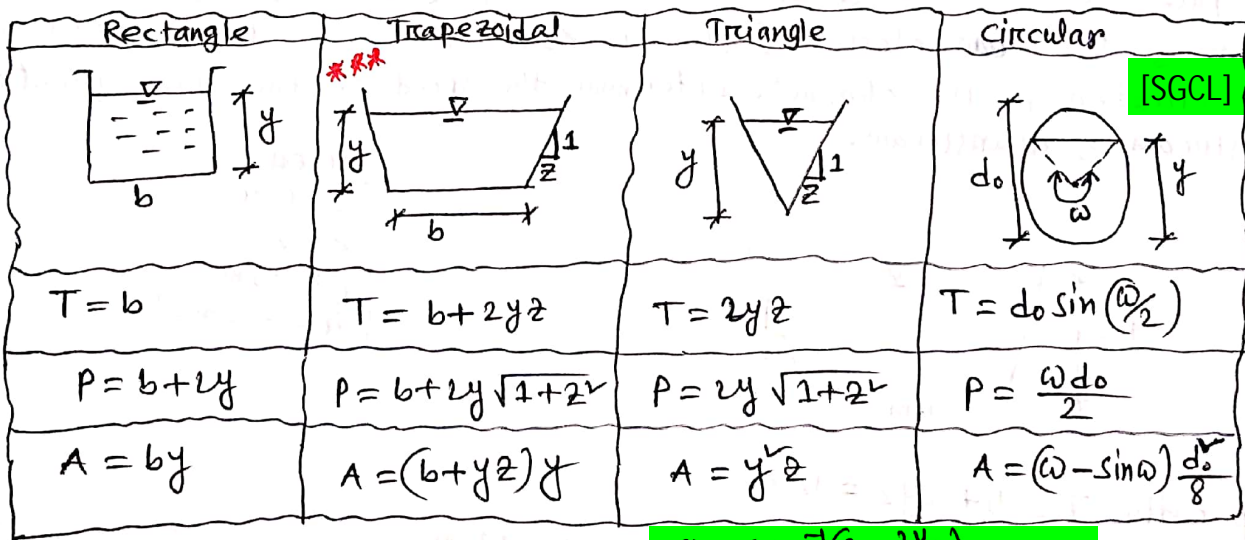 Rectangle Trapezoidal Triangle circular
***
[SGCL]
y
b
y
1
z
b
y
1
z
d₀
ω
y
T = b T = b+2yz T = 2yz T = d₀ sin (ω/2)
P = b+2y P = b+2y √1+z² P = 2y √1+z² P = ωd₀/2
A = by A = (b+yz) y A = y²z A = (ω - sinω) d₀²/8